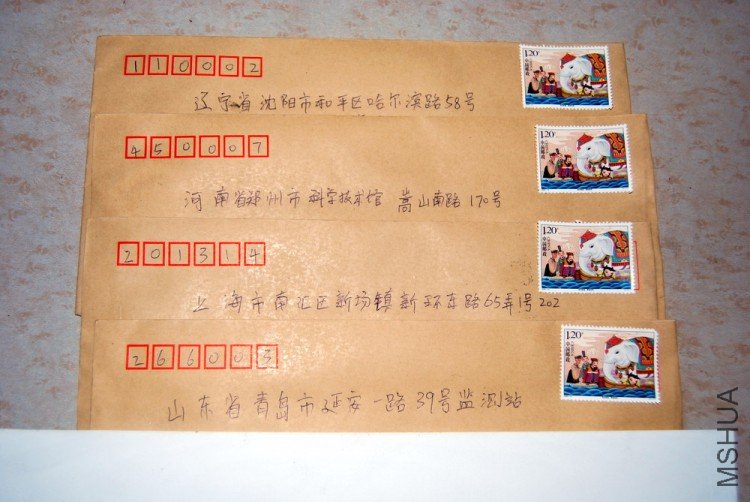 110002
1.20
中国邮政
辽宁省沈阳市和平区哈尔滨路58号
450007
1.20
中国邮政
河南省郑州市科学技术馆 嵩山南路170号
201314
1.20
中国邮政
上海市南汇区新场镇新环东路65弄1号202
266003
1.20
中国邮政
山东省青岛市延安一路39号监测站
MSHUA